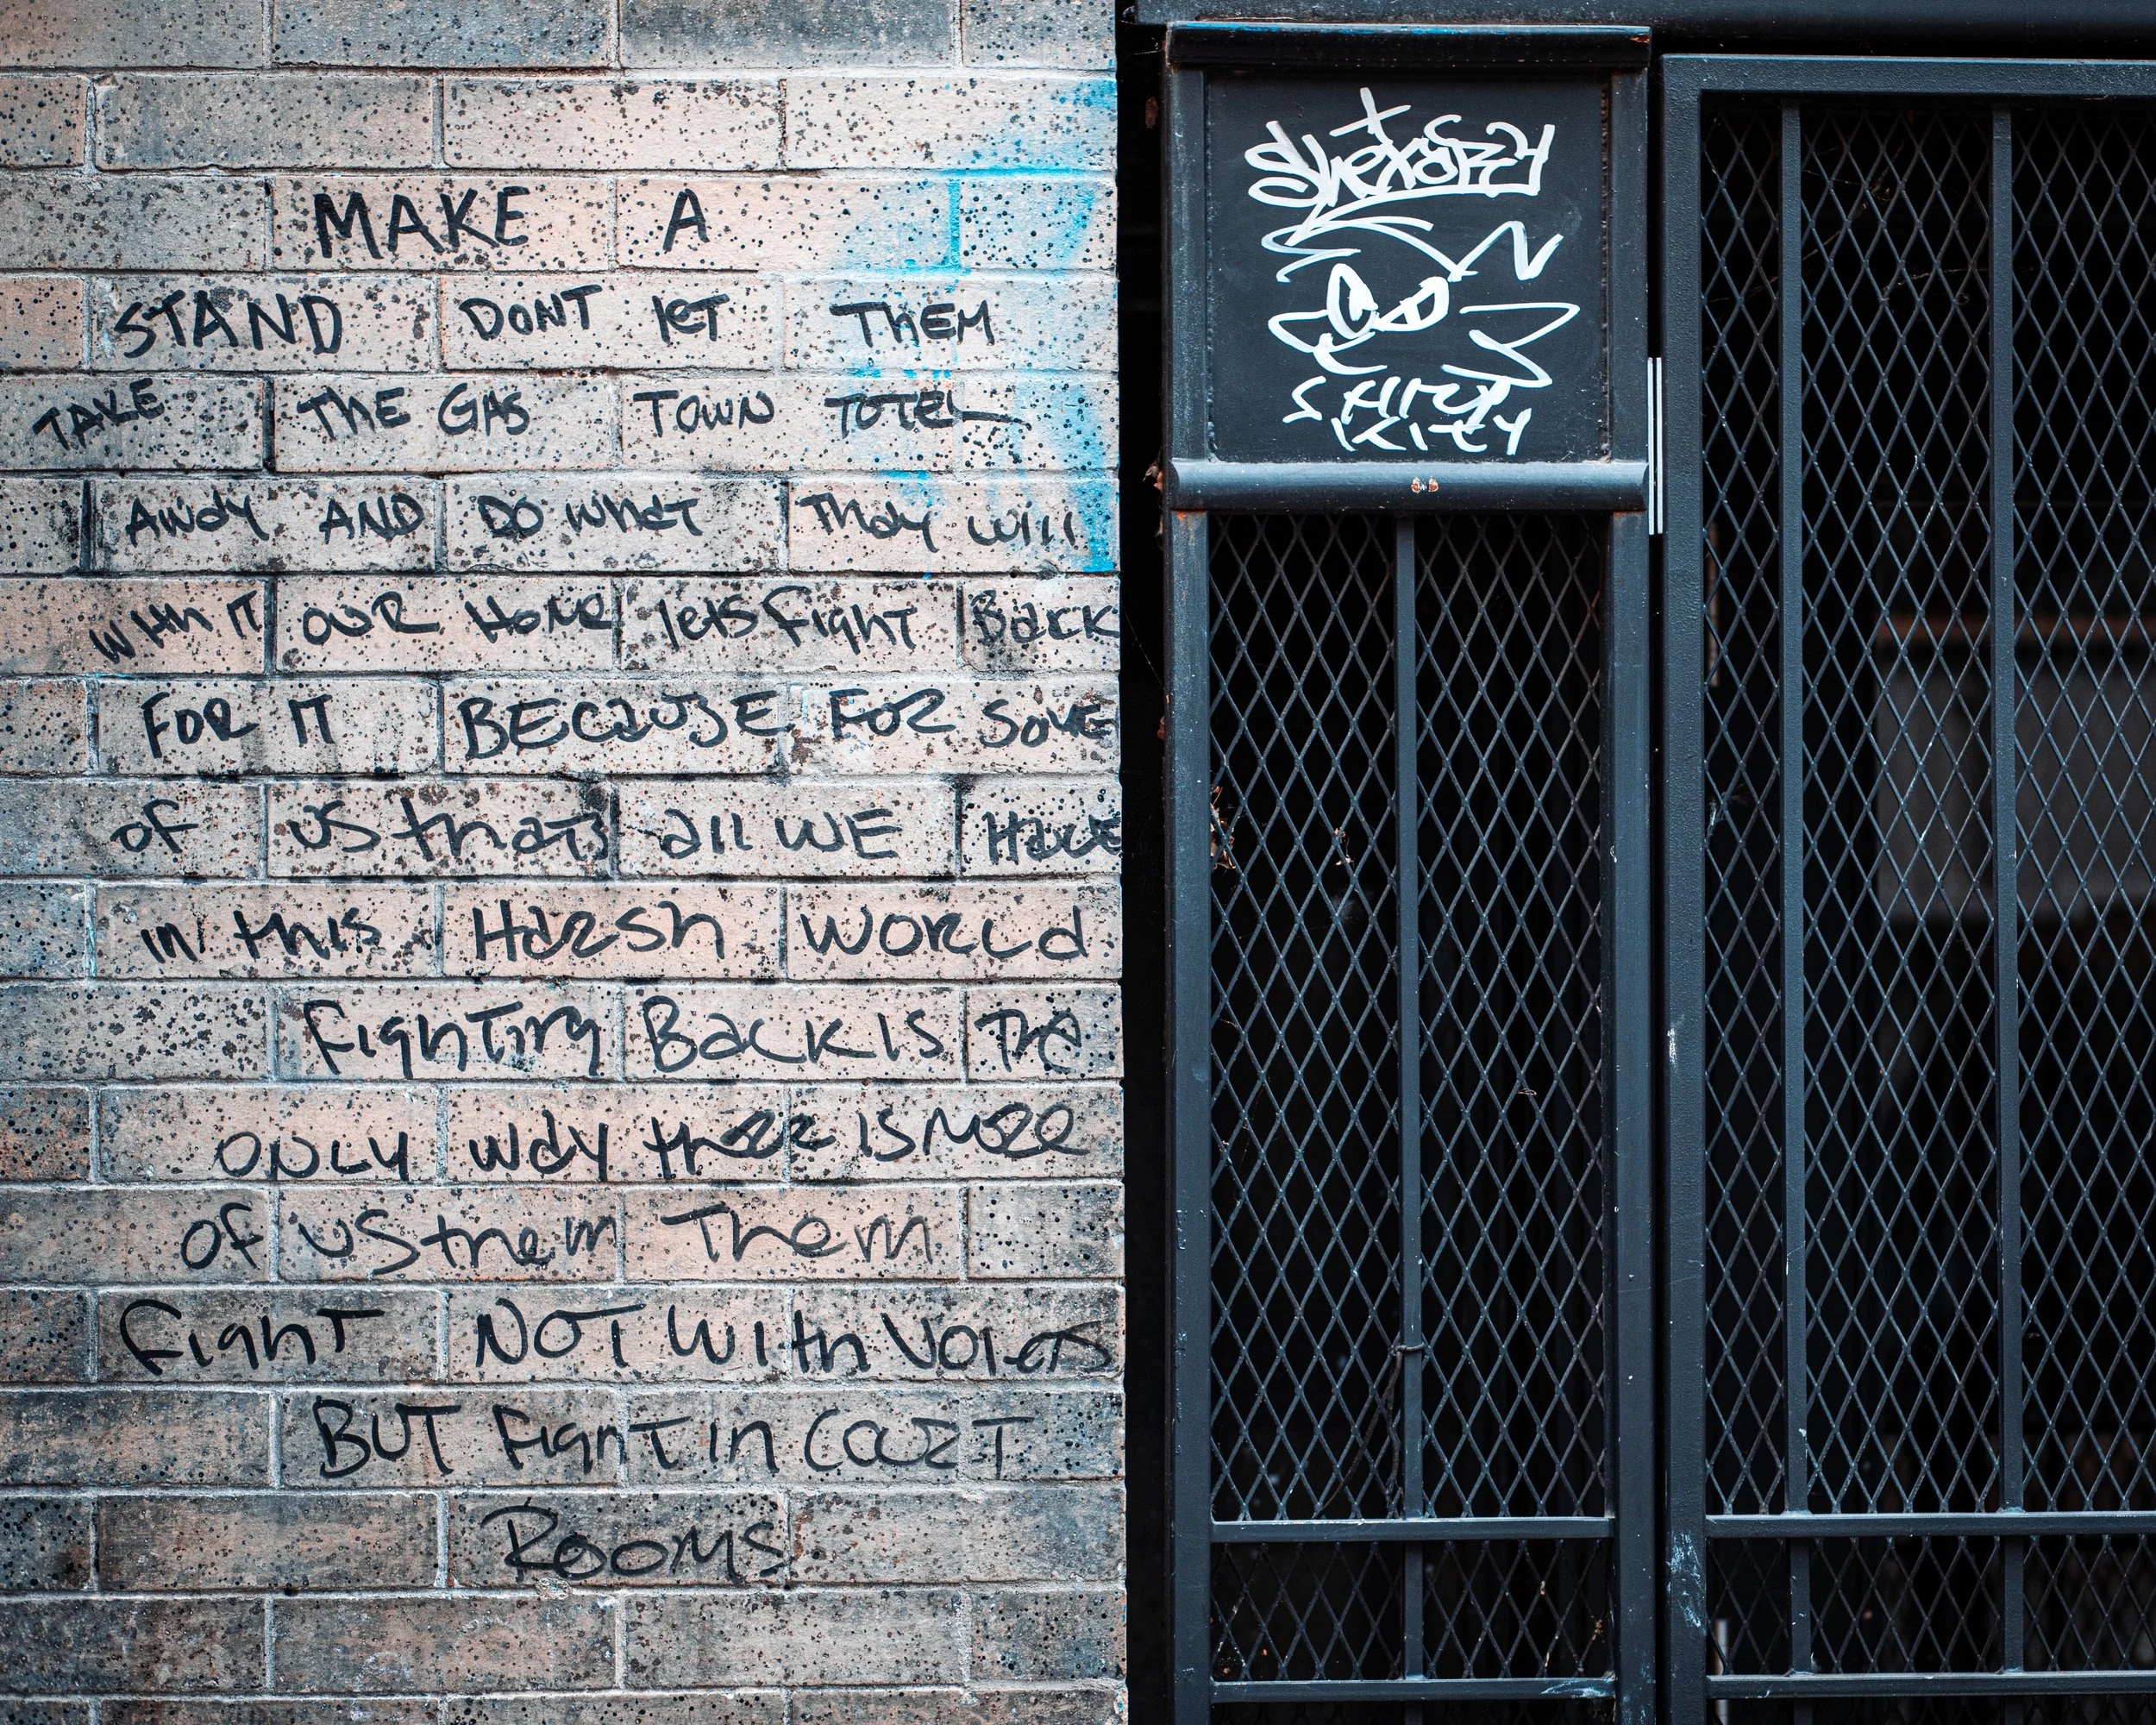 MAKE A
STAND DONT let THEM
TAKE THE GAS TOWN TOTEL
AWAY AND DO WhaT Thay will
With IT OUR HOME lets fight Back
FOR IT BECAUSE FOR SOME
of US thats all WE HAVE
in this HARSH WORLd
FighTing BACK IS The
ONLY WAY there IS MORE
of US them Them
FighT NOT With
BUT FighT in COURT
ROOMS